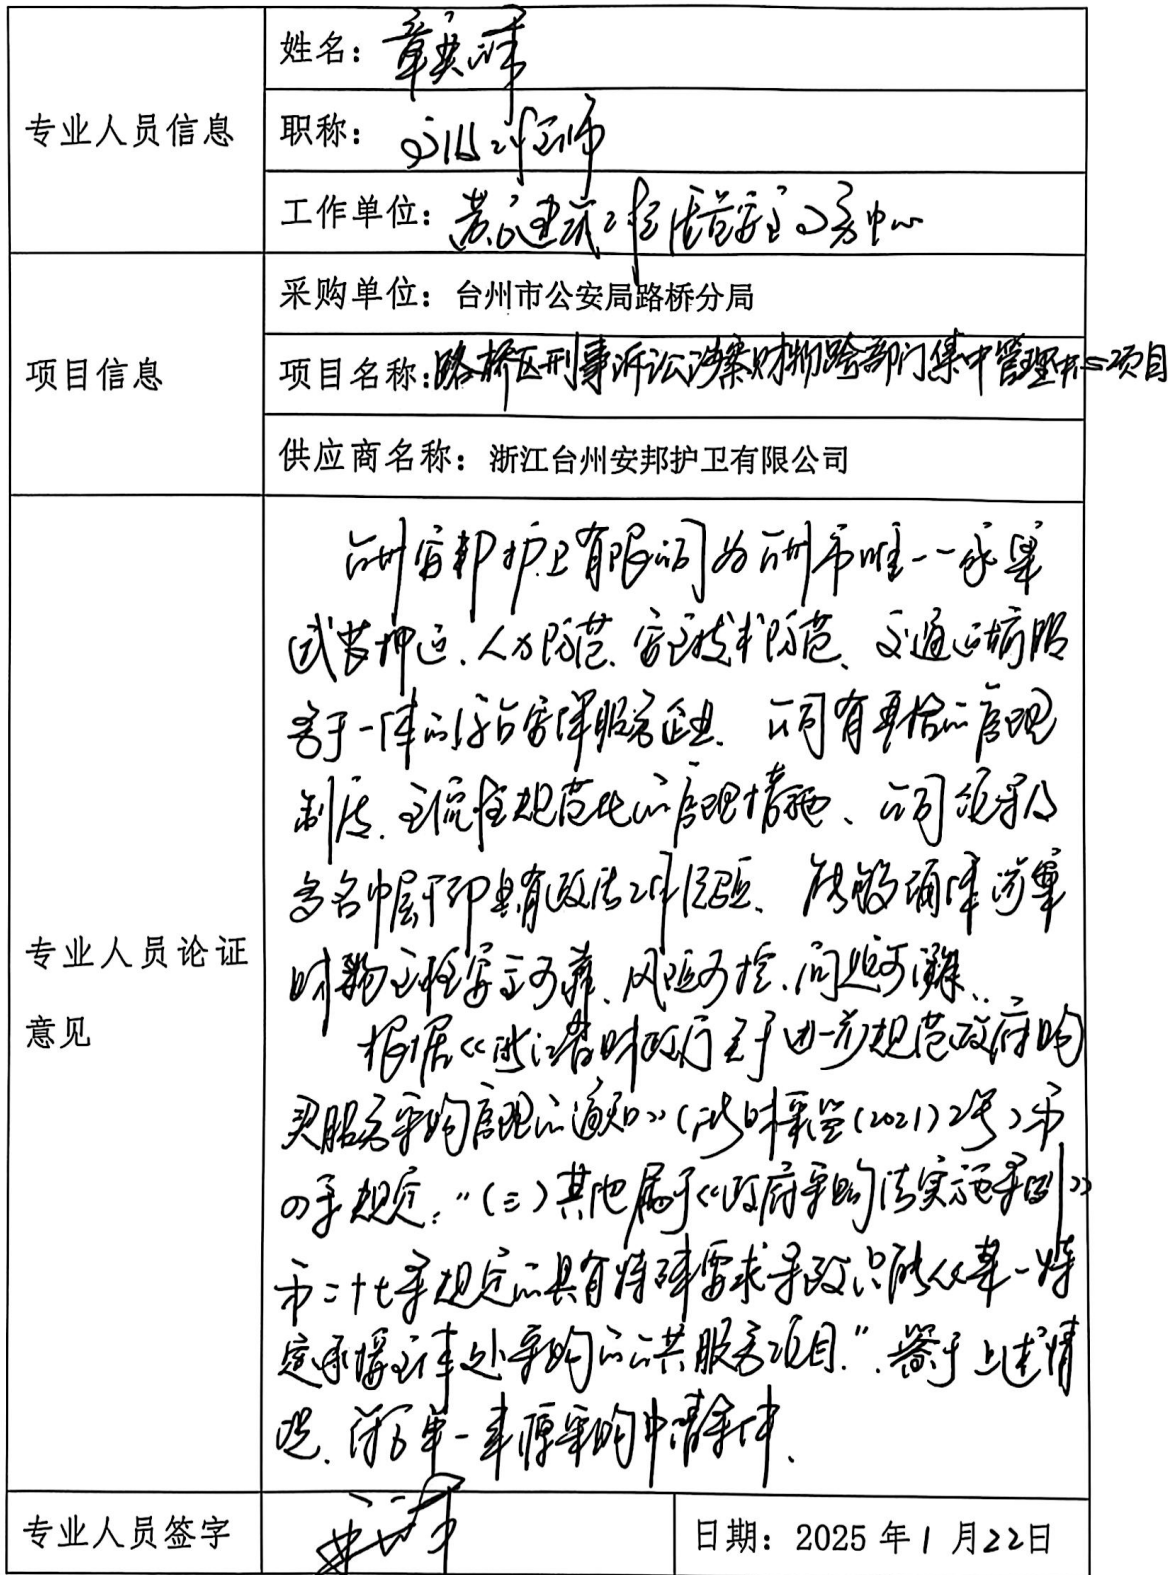 专业人员信息
姓名：章
职称：工程师
工作单位：黄岩建筑工程质监安全服务中心
项目信息
采购单位：台州市公安局路桥分局
项目名称：路桥区刑事诉讼涉案财物跨部门集中管理中心项目
供应商名称：浙江台州安邦护卫有限公司
专业人员论证
意见
台州安邦护卫有限公司为台州市唯一一家集
武装押运、人力防范、安全技术防范、交通协防服
务于一体的综合安保服务企业、公司有严格的管理
制度、全流程规范化的管理措施、公司领导及
多名中层干部具有政法工作经验、能够确保涉案
财物全程安全可靠、风险可控、问题可溯、
根据《浙江省财政厅关于进一步规范政府购
买服务采购管理的通知》（浙财采监(2021)2号）第
四条规定："（三）其他属于《政府采购法实施条例》
第二十七条规定的具有特殊要求导致只能从某一特
定承接主体处采购的公共服务项目."．鉴于上述情
况、符合单一来源采购申请条件、
专业人员签字
日期：2025年1月22日